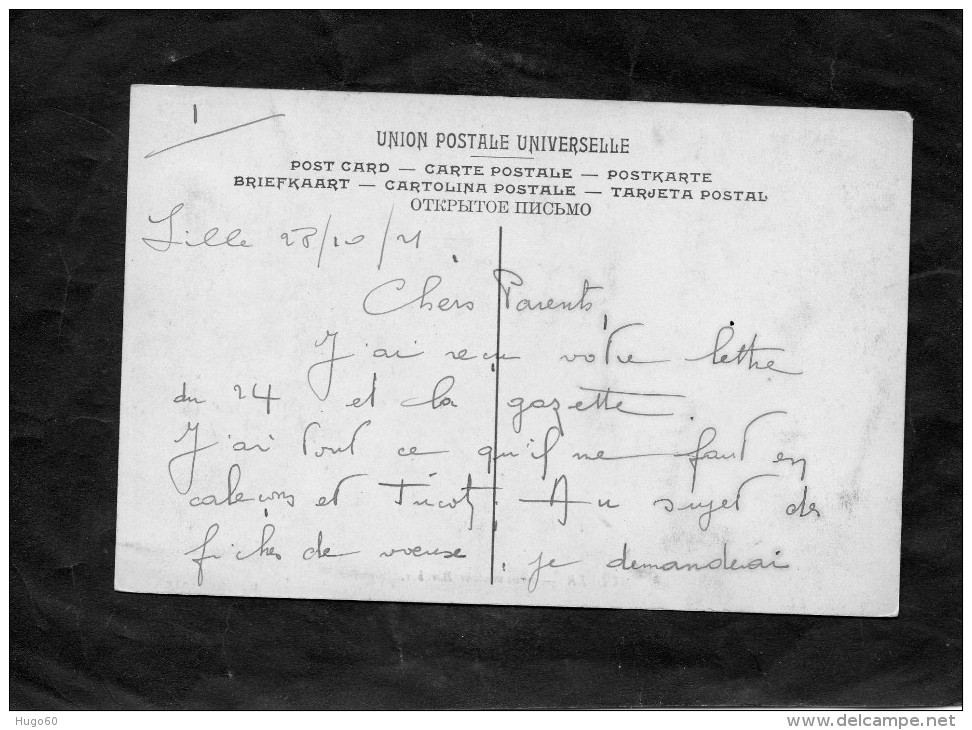 1
UNION POSTALE UNIVERSELLE
POST CARD — CARTE POSTALE — POSTKARTE
BRIEFKAART — CARTOLINA POSTALE — TARJETA POSTAL
ОТКРЫТОЕ ПИСЬМО
Lille 28/10/21
Chers Parents
J'ai recu votre lettre
du 24 et la gazette
J'ai tout ce qu'il me faut en
caleçons et tricots Au sujet des
fiches de , je demanderai
Hugo60
www.delcampe.net